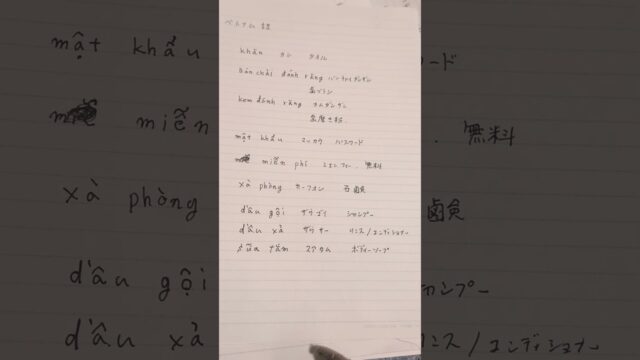 ベトナム語
khăn カン タオル
bàn chải đánh răng バンチャイダンザン
歯ブラシ
kem đánh răng ケムダンザン
歯磨き粉
mật khẩu マッカウ パスワード
miễn phí ミエンフィー、無料
xà phòng サーフォン 石鹸
dầu gội ザウゴイ シャンプー
dầu xả ザウサー リンス/コンディショナー
sữa tắm スアタム ボディーソープ
mật khẩu ード
miễn 、無料
xà phòng 鹸
dầu gội ャンプー
dầu xả リンス/コンディショナー